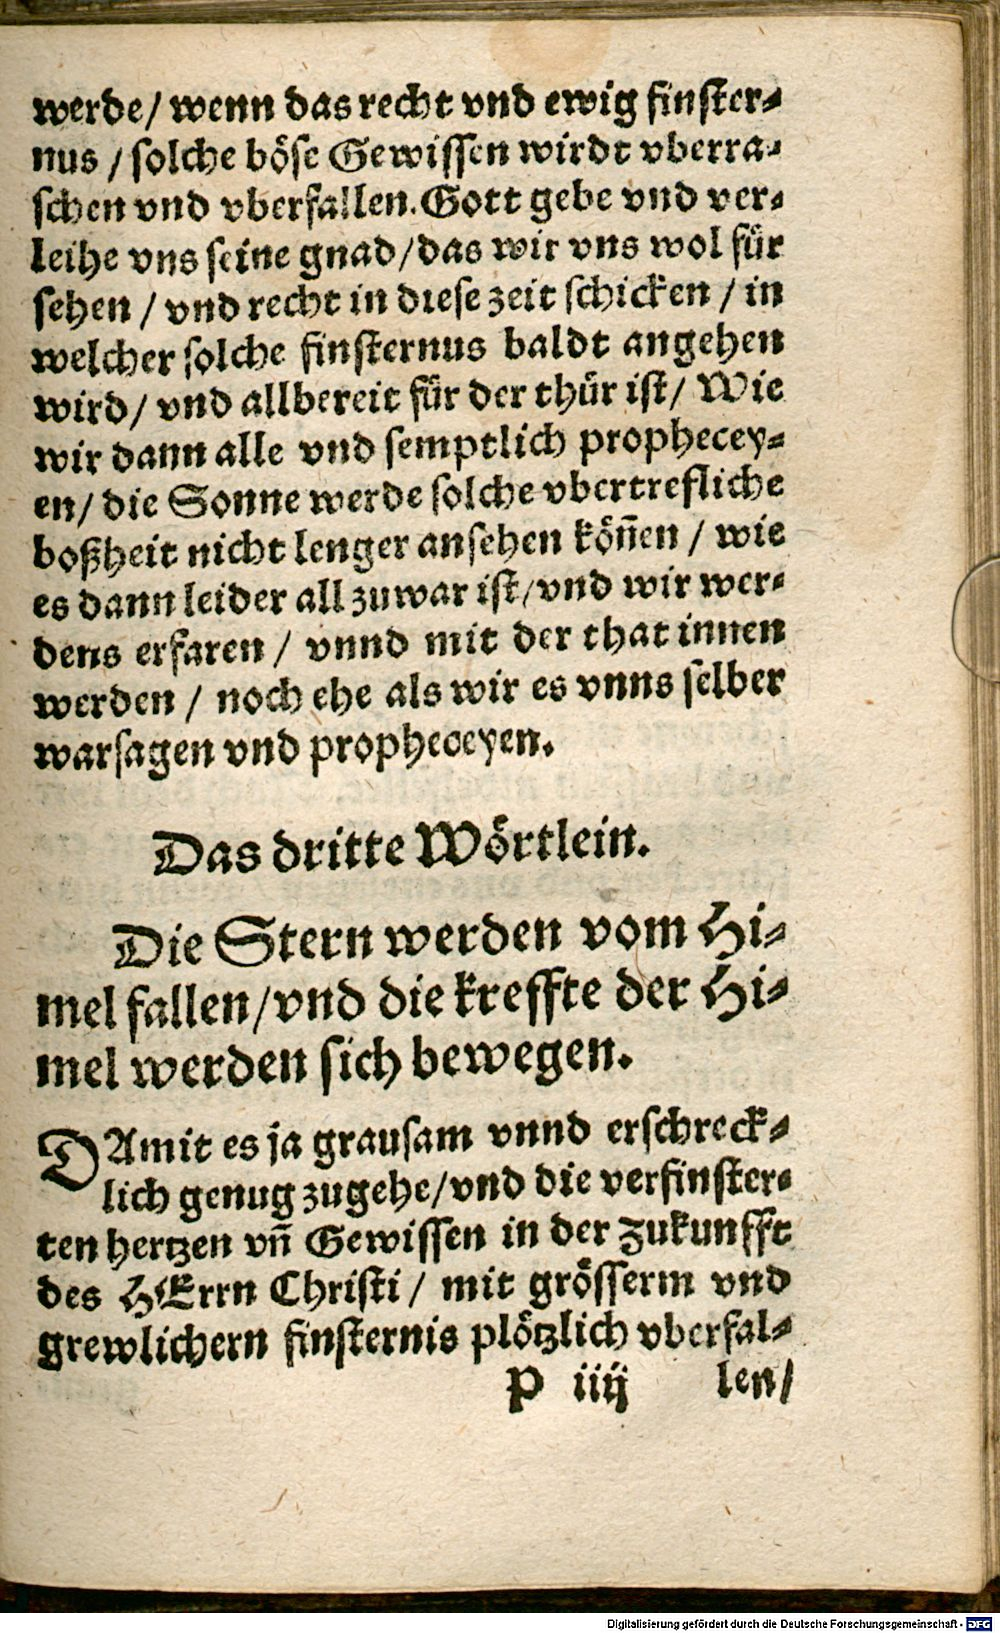 werde/ wenn das recht vnd ewig finster⸗
nus / solche böse Gewissen wirdt vberra⸗
schen vnd vberfallen. Gott gebe vnd ver⸗
leihe vns seine gnad/das wir vns wol für
sehen / vnd recht in diese zeit schicken / in
welcher solche finsternus baldt angehen
wird/ vnd allbereit für der thür ist/ Wie
wir dann alle vnd semptlich prophecey⸗
en/ die Sonne werde solche vbertrefliche
boßheit nicht lenger ansehen köñen / wie
es dann leider all zuwar ist/vnd wir wer⸗
dens erfaren / vnnd mit der that innen
werden / noch ehe als wir es vnns selber
warsagen vnd propheceyen.
Das dritte Wörtlein.
Die Stern werden vom Hi⸗
mel fallen/vnd die kreffte der Hi⸗
mel werden sich bewegen.
DAmit es ja grausam vnnd erschreck⸗
lich genug zugehe/vnd die verfinster⸗
ten hertzen vñ Gewissen in der zukunfft
des HErrn Christi/ mit grösserm vnd
grewlichern finsternis plötzlich vberfal⸗
P iiij len/
Digitalisierung gefördert durch die Deutsche Forschungsgemeinschaft - DFG